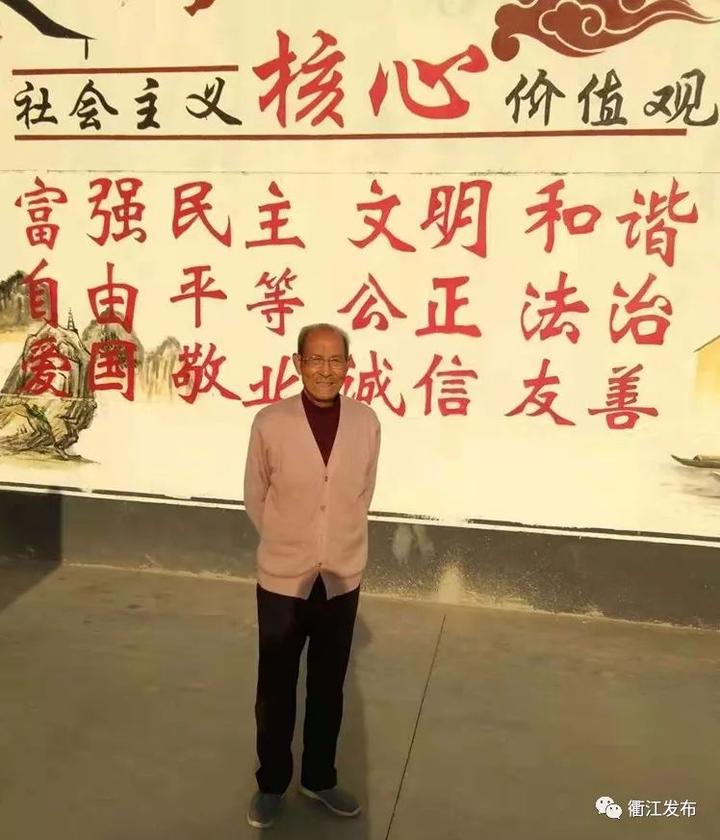 社会主义核心价值观
富强 民主 文明 和谐
自由 平等 公正 法治
爱国 敬业 诚信 友善
衢江发布